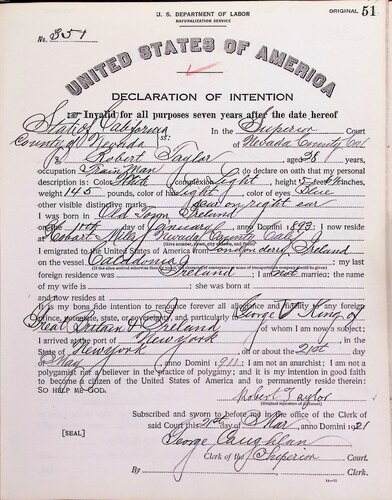 U. S. DEPARTMENT OF LABOR
NATURALIZATION SERVICE
ORIGINAL 51
No. 351
UNITED STATES OF AMERICA
DECLARATION OF INTENTION
Invalid for all purposes seven years after the date hereof
State of California
ss: In the Superior Court
County of Nevada of Nevada County Cal
I, Robert Taylor, aged 28 years,
occupation Train Man, do declare on oath that my personal
description is: Color White, complexion Light, height 5 feet inches,
weight 145 pounds, color of hair Light, color of eyes Blue
other visible distinctive marks Scar on right ear
I was born in Old Town Ireland
on the day of January, anno Domini 1893; I now reside
at Hobart Mills Nevada County Calif
I emigrated to the United States of America from Londonderry Ireland
on the vessel Caledonia; my last
foreign residence was Ireland; I am not married; the name
of my wife is ; she was born at
and now resides at
It is my bona fide intention to renounce forever all allegiance and fidelity to any foreign
prince, potentate, state, or sovereignty, and particularly to George V King of
Great Britain & Ireland, of whom I am now a subject;
I arrived at the port of New York, in the
State of New York, on or about the 21st day
of May, anno Domini 1911; I am not an anarchist; I am not a
polygamist nor a believer in the practice of polygamy; and it is my intention in good faith
to become a citizen of the United States of America and to permanently reside therein:
SO HELP ME GOD.
Robert Taylor
(Original signature of declarant)
Subscribed and sworn to before me in the office of the Clerk of
said Court this 2nd day of Mar, anno Domini 1921
[SEAL]
George Caughlan
Clerk of the Superior Court.
By , Clerk.